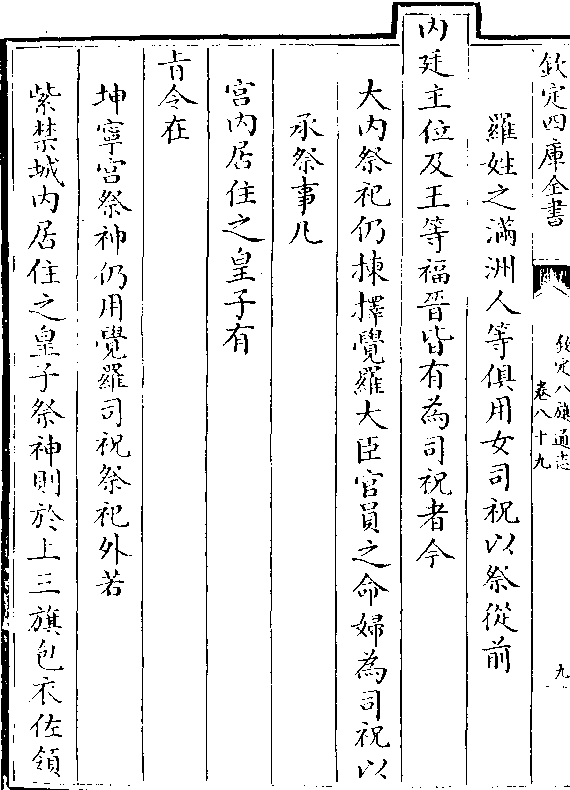 欽定四庫全書
欽定八旗通志
卷八十九
九
羅姓之滿洲人等俱用女司祝以祭從前
内廷主位及王等福晋皆有為司祝者今
大内祭祀仍揀擇覺羅大臣官員之命婦為司祝以
承祭事凡
宫内居住之皇子有
㫖令在
坤寧宫祭神仍用覺羅司祝祭祀外若
紫禁城内居住之皇子祭神則於上三旗包衣佐領